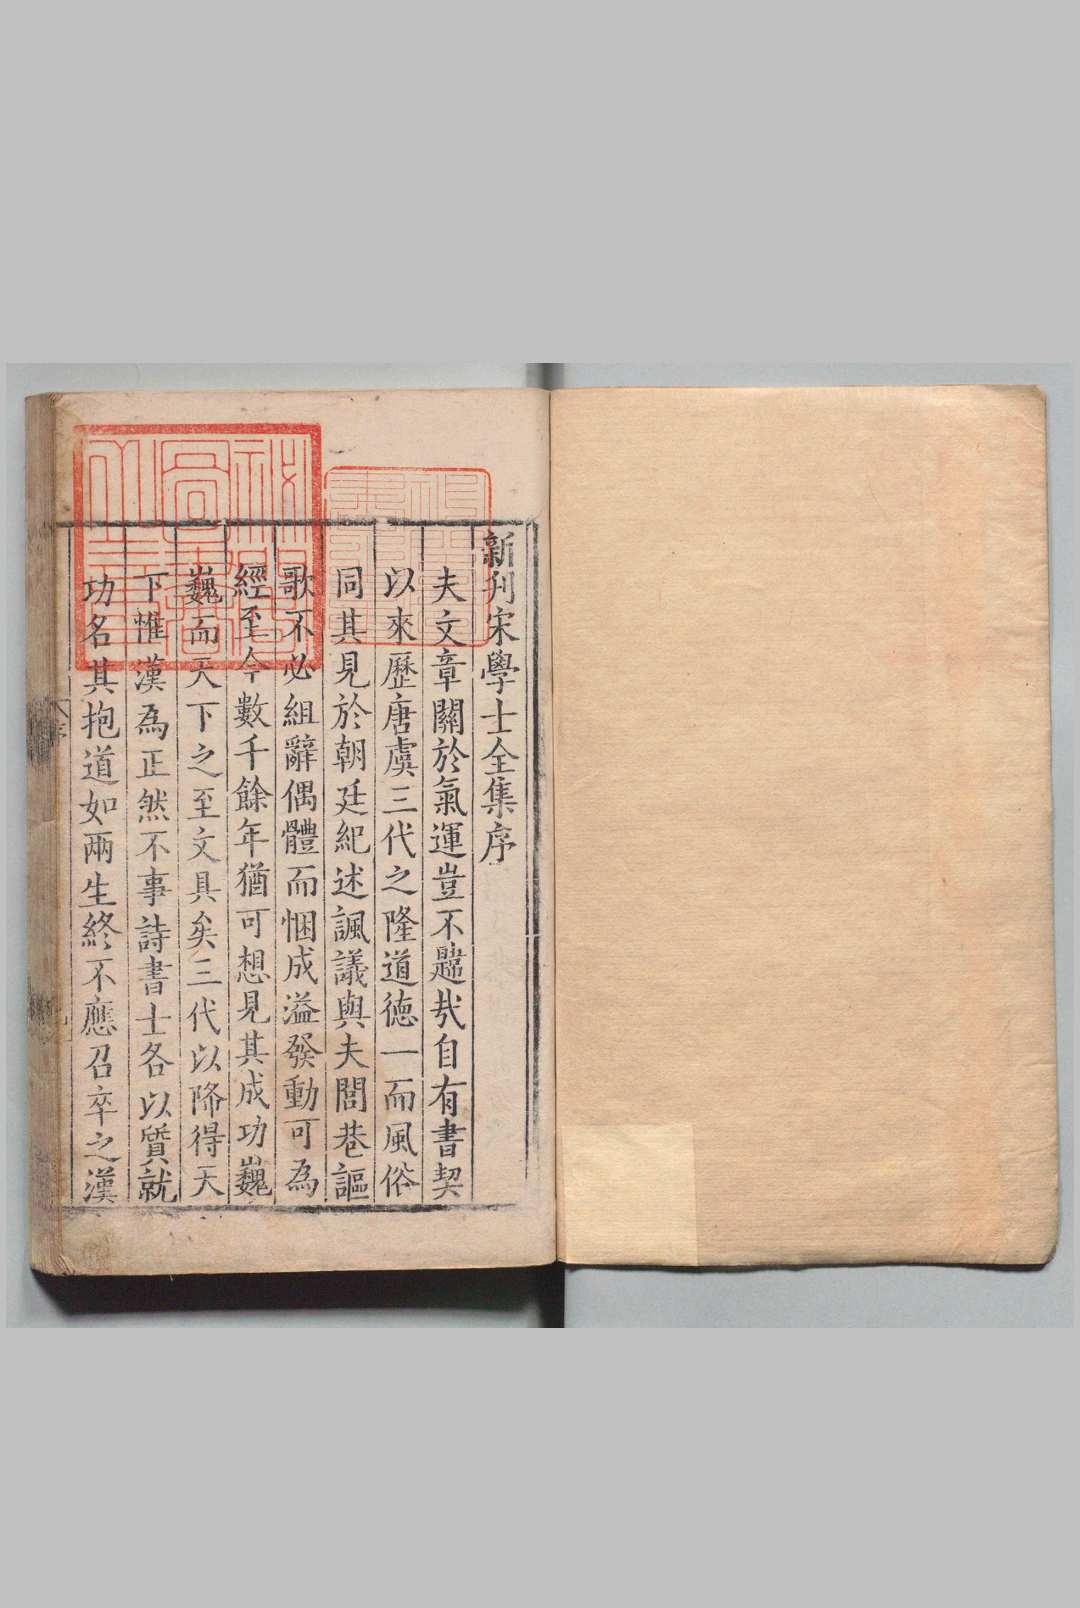 新刋宋學士全集序
夫文章關於氣運豈不韙哉自有書契
以來歷唐虞三代之隆道德一而風俗
同其見於朝廷紀述諷議與夫閭巷謳
歌不必組辭偶體而悃成溢發動可為
經至今數千餘年猶可想見其成功巍
巍而天下之至文具矣三代以降得天
下惟漢為正然不事詩書士各以質就
功名其抱道如兩生終不應召卒之漢